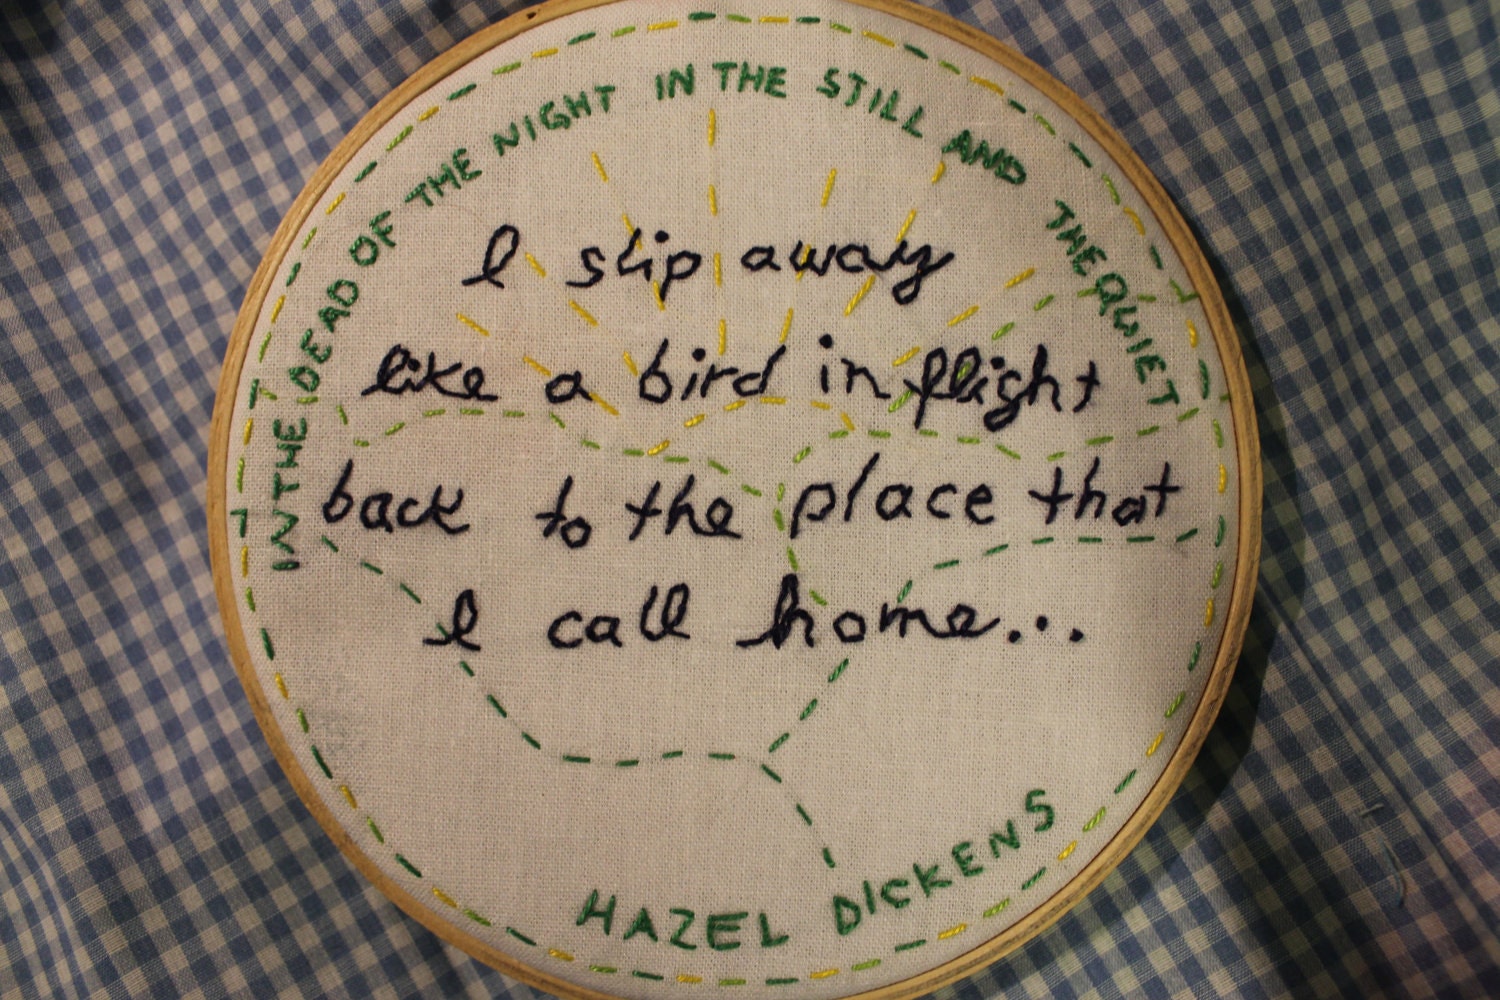 IN THE DEAD OF THE NIGHT IN THE STILL AND THE QUIET
I slip away
like a bird in flight
back to the place that
I call home...
HAZEL DICKENS